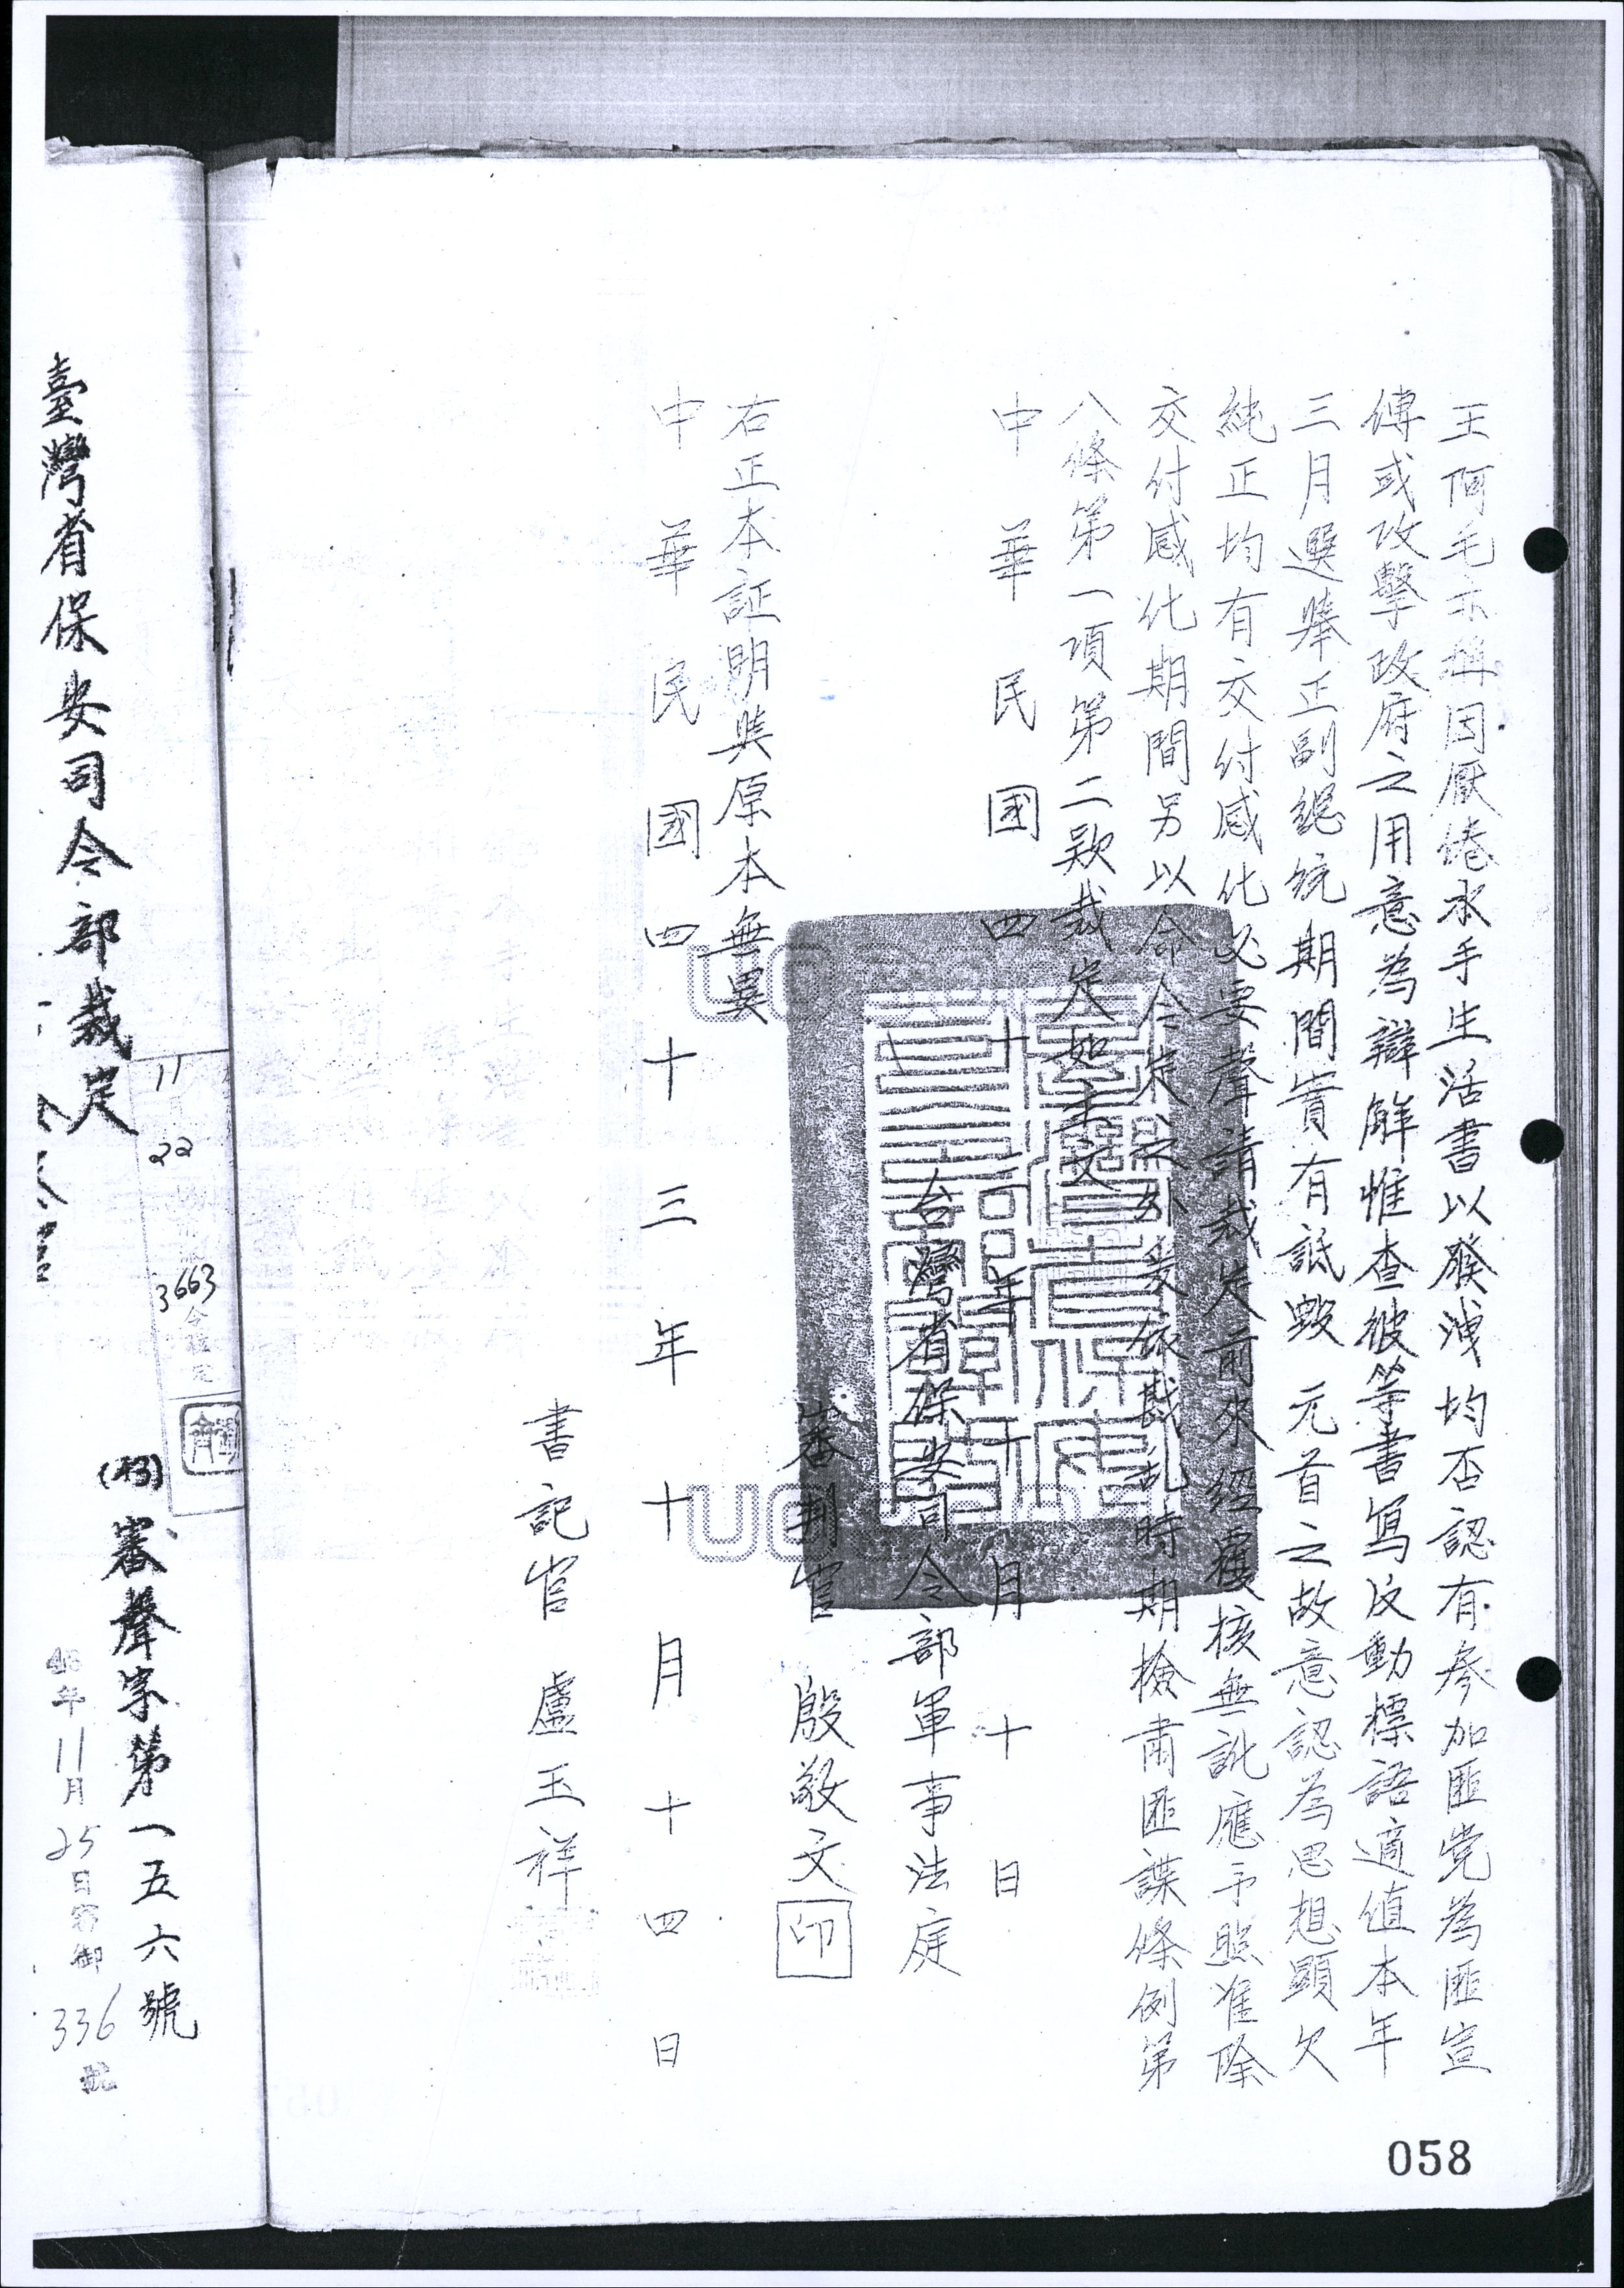 王阿毛亦稱因厭倦水手生活書以發洩均否認有參加匪党為匪宣
傳或攻擊政府之用意為辯解惟查彼等書寫反動標語適值本年
三月選舉正副總統期間實有詆毀 元首之故意認為思想顯欠
純正均有交付感化必要聲請裁定前來經覆核無訛應予照准除
交付感化期間另以命令定之外爰依戡乱時期檢肅匪諜條例第
八條第一項第二款裁定如主文
中華民國四十三年十月十日
台灣省保安司令部軍事法庭
審判官 殷敬文 印
右正本証明與原本無異
中華民國四十三年十月十四日
書記官 盧玉祥
058
臺灣省保安司令部裁定
(43)審聲字第一五六號
11 22
3663
年11月25日
336號